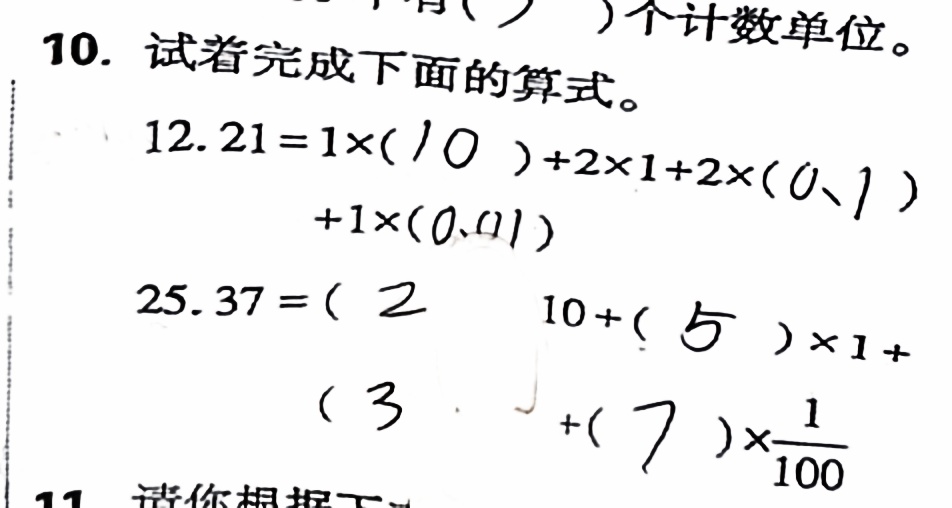 )个计数单位。
10. 试着完成下面的算式。
12.21=1×(10)+2×1+2×(0.1)
+1×(0.01)
25.37=(2 10+(5)×1+
(3 +(7)×1/100
11. 请你根据下